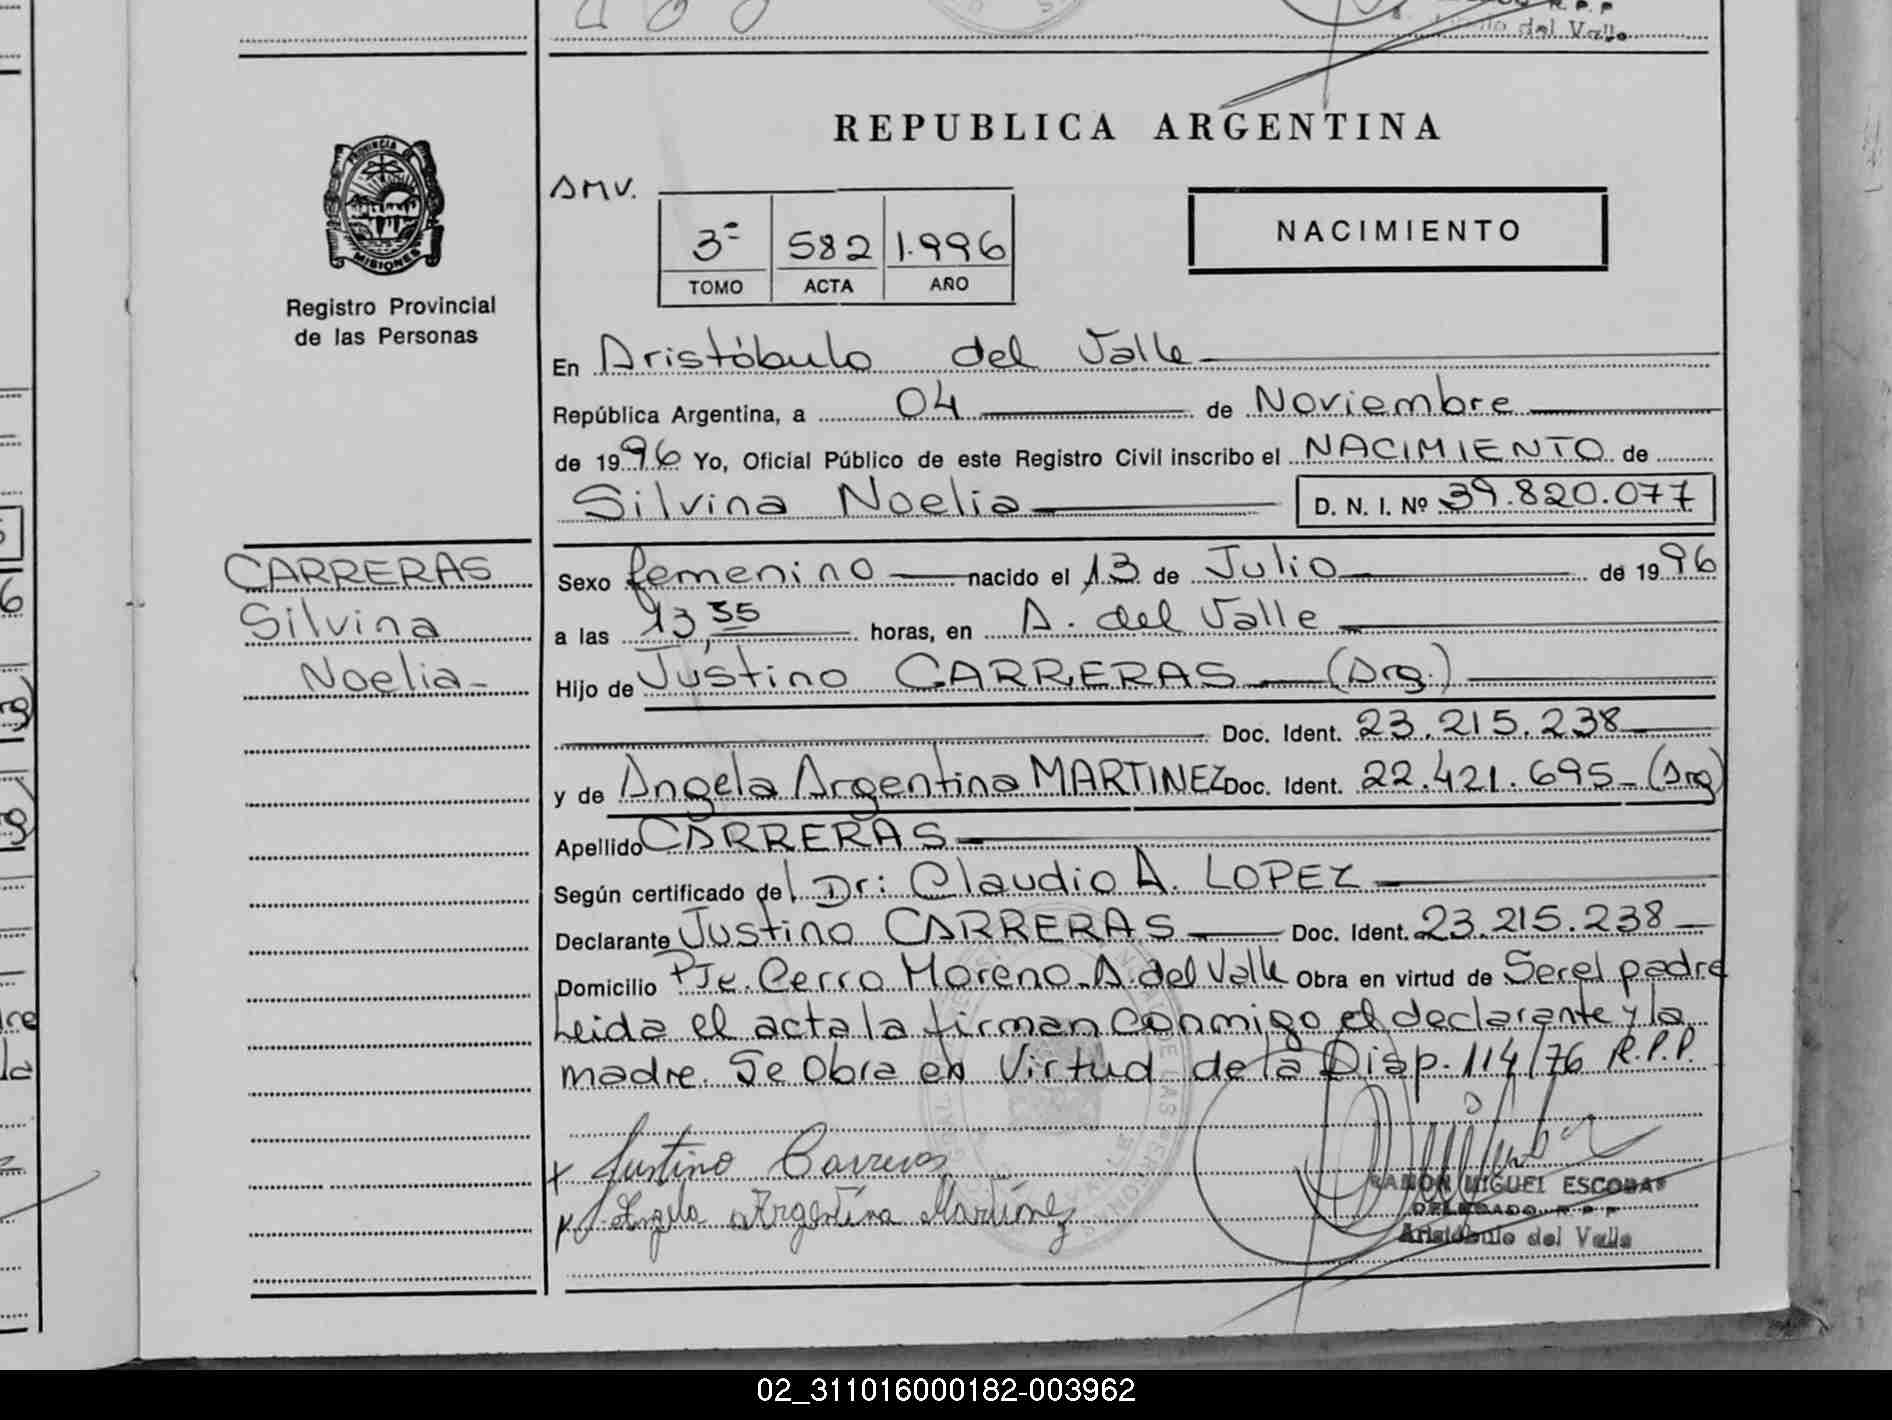 del Valle
REPUBLICA ARGENTINA
PROVINCIA DE
MISIONES
Registro Provincial
de las Personas
AMV.
3º 582 1.996
TOMO ACTA AÑO
NACIMIENTO
En Aristóbulo del Valle
República Argentina, a 04 de Noviembre
de 1996 Yo, Oficial Público de este Registro Civil inscribo el NACIMIENTO de
Silvina Noelia D. N. I. Nº 39.820.077
CARRERAS
Silvina
Noelia
Sexo femenino nacido el 13 de Julio de 1996
a las 13,35 horas, en A. del Valle
Hijo de Justino CARRERAS (Arg.)
Doc. Ident. 23.215.238
y de Angela Argentina MARTINEZ Doc. Ident. 22.421.695 (Arg)
Apellido CARRERAS
Según certificado del Dr: Claudio A. LOPEZ
Declarante Justino CARRERAS Doc. Ident. 23.215.238
Domicilio PJe. Cerro Moreno. A. del Valle Obra en virtud de Ser el padre
Leida el acta la firman conmigo el declarante y la
madre. Se Obra en Virtud de la Disp. 114/76 R.P.P.
x Justino Carreras
x Angela Argentina Martinez
RAMON MIGUEL ESCOBAR
DELEGADO R.P.P.
Aristóbulo del Valle
02_311016000182-003962